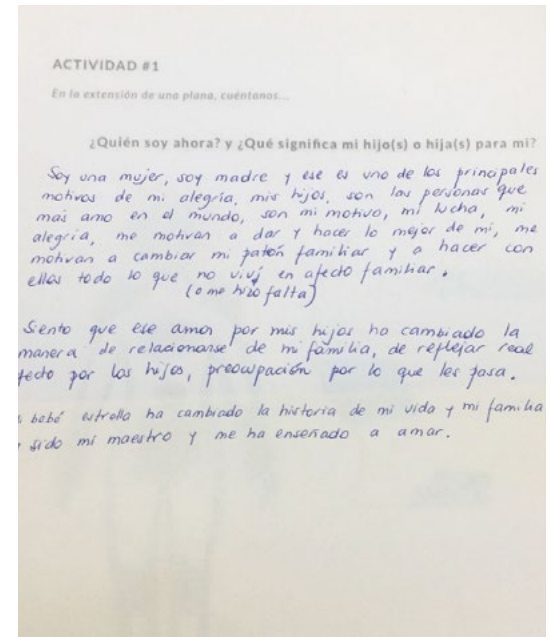 ACTIVIDAD #1
En la extensión de una plana, cuéntanos...
¿Quién soy ahora? y ¿Qué significa mi hijo(s) o hija(s) para mi?
Soy una mujer, soy madre y ese es uno de los principales
motivos de mi alegría, mis hijos, son las personas que
mas amo en el mundo, son mi motivo, mi lucha, mi
alegria, me motivan a dar y hacer lo mejor de mi, me
motivan a cambiar mi patón familiar y a hacer con
ellos todo lo que no viví en afecto familiar.
(o me hizo falta)
Siento que ese amor por mis hijos ha cambiado la
manera de relacionarse de mi familia, de reflejar real
fecto por los hijos, preocupación por lo que les pasa.
bebé estrella ha cambiado la historia de mi vida y mi familia
sido mi maestro y me ha enseñado a amar.